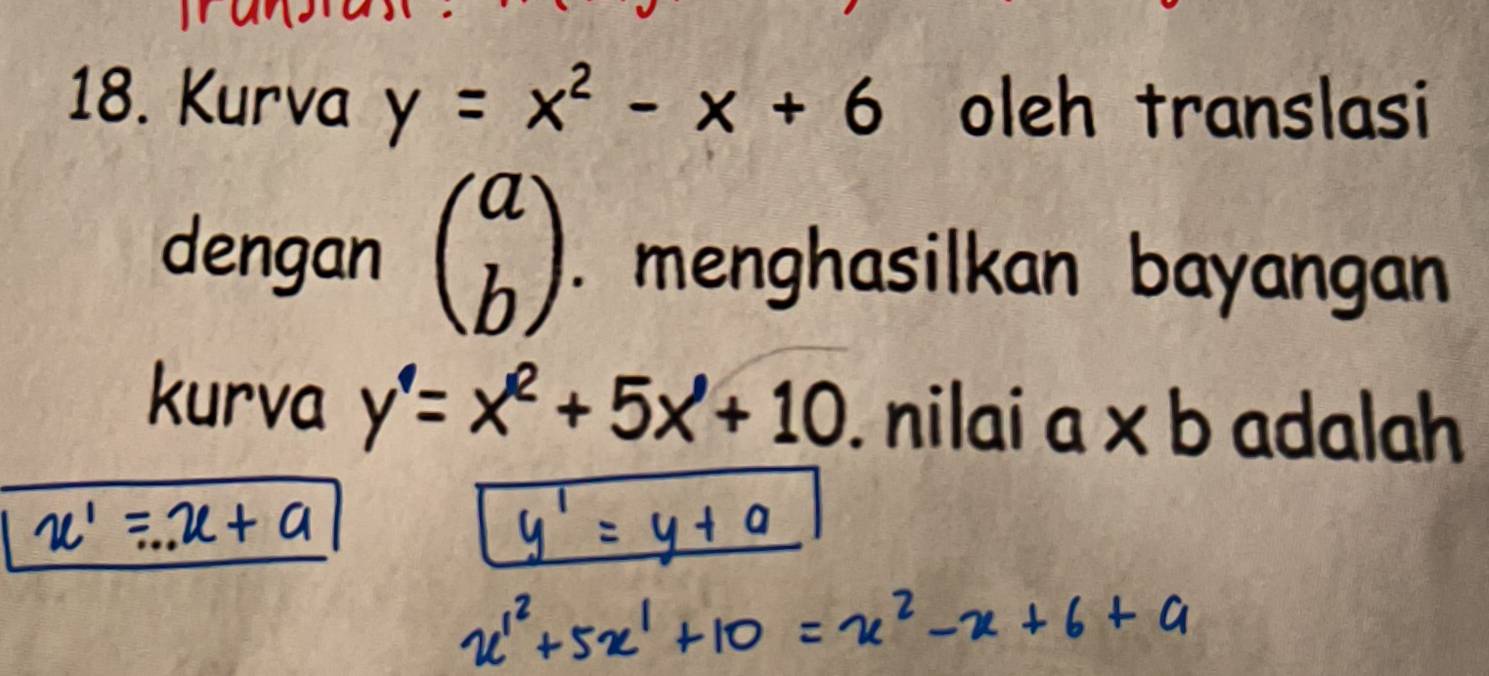 18. Kurva y = x² - x + 6 oleh translasi
dengan (a b). menghasilkan bayangan
kurva y' = x'² + 5x' + 10. nilai a x b adalah
...
x' = x + a
y' = y + a
x'² + 5x' + 10 = x² - x + 6 + a